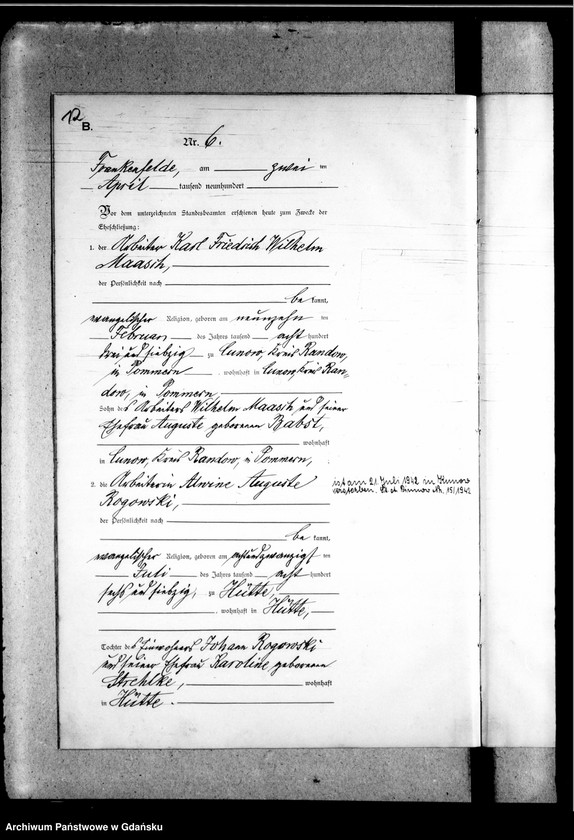 12
B.
Nr. 6.
Frankenfelde, am zwei ten
April tausend neunhundert
Vor dem unterzeichneten Standesbeamten erschienen heute zum Zwecke der
Eheschließung:
1. der Arbeiter Karl Friedrich Wilhelm
Maasch,
der Persönlichkeit nach
be kannt,
evangelischer Religion, geboren am neunzehn ten
Februar des Jahres tausend acht hundert
drei und siebzig zu Cunow, Kreis Randow,
in Pommern, wohnhaft in Cunow, Kreis Ran-
dow, in Pommern,
Sohn des Arbeiters Wilhelm Maasch und seiner
Ehefrau Auguste geborenen Rabst,
wohnhaft
in Cunow, Kreis Randow, in Pommern,
2. die Arbeiterin Alwine Auguste
Rogowski,
ist am 21. Juli 1942 in Kunow
verstorben. St. A. Kunow Nr. 15/1942
der Persönlichkeit nach
be kannt,
evangelischer Religion, geboren am achtundzwanzigst ten
Juli des Jahres tausend acht hundert
sechs und siebzig, zu Hütte,
wohnhaft in Hütte,
Tochter des Einwohners Johann Rogowski
und seiner Ehefrau Karoline geborenen
Strehlke, wohnhaft
in Hütte.
Archiwum Państwowe w Gdańsku